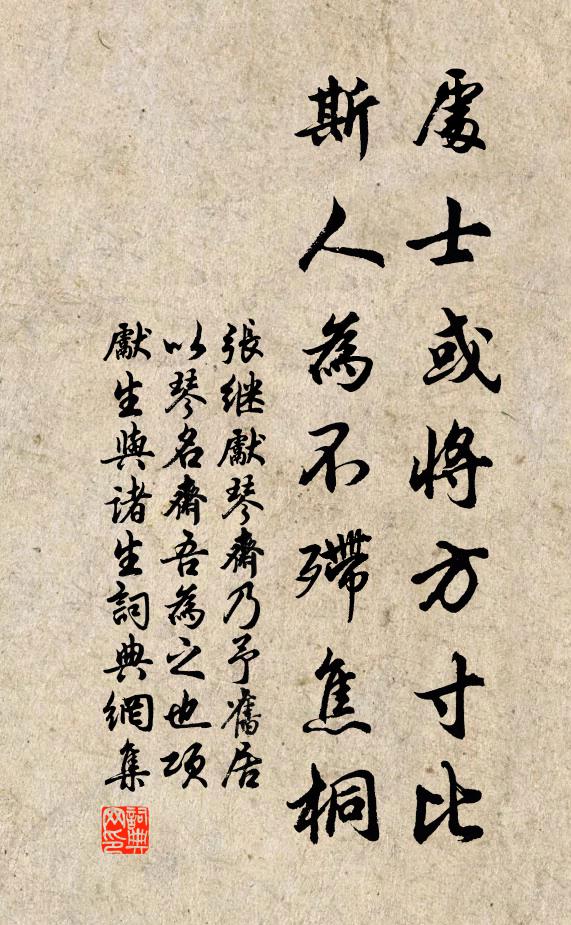 處士或將方寸比
斯人為不殢焦桐
張继獻琴齋乃予舊居
以琴名齋吾為之也項
獻生與诸生詞典網集
詞典
网印